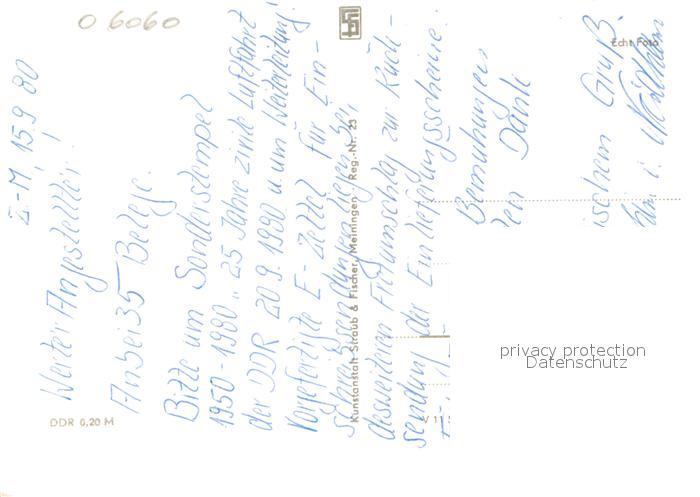 O 6060
Z.-M, 15.9.80
Werter Angestellter.
Anbei 35 Belege.
Bitte um Sonderstempel
1950-1980 „25 Jahre zivile Luftfahrt
der DDR 20.9.1980 u. um Weiterleitung!
Vorgefertigte E-Zettel für Ein-
schreibsendungen liegen bei,
desweiteren Freiumschlag zur Rück-
sendung der Einlieferungsscheine.
Bemühungen
Dank
ischem Gruß.
Echt Foto
Kunstanstalt Straub & Fischer, Meiningen Reg.-Nr. 23
DDR 0,20 M
V 11
privacy protection
Datenschutz